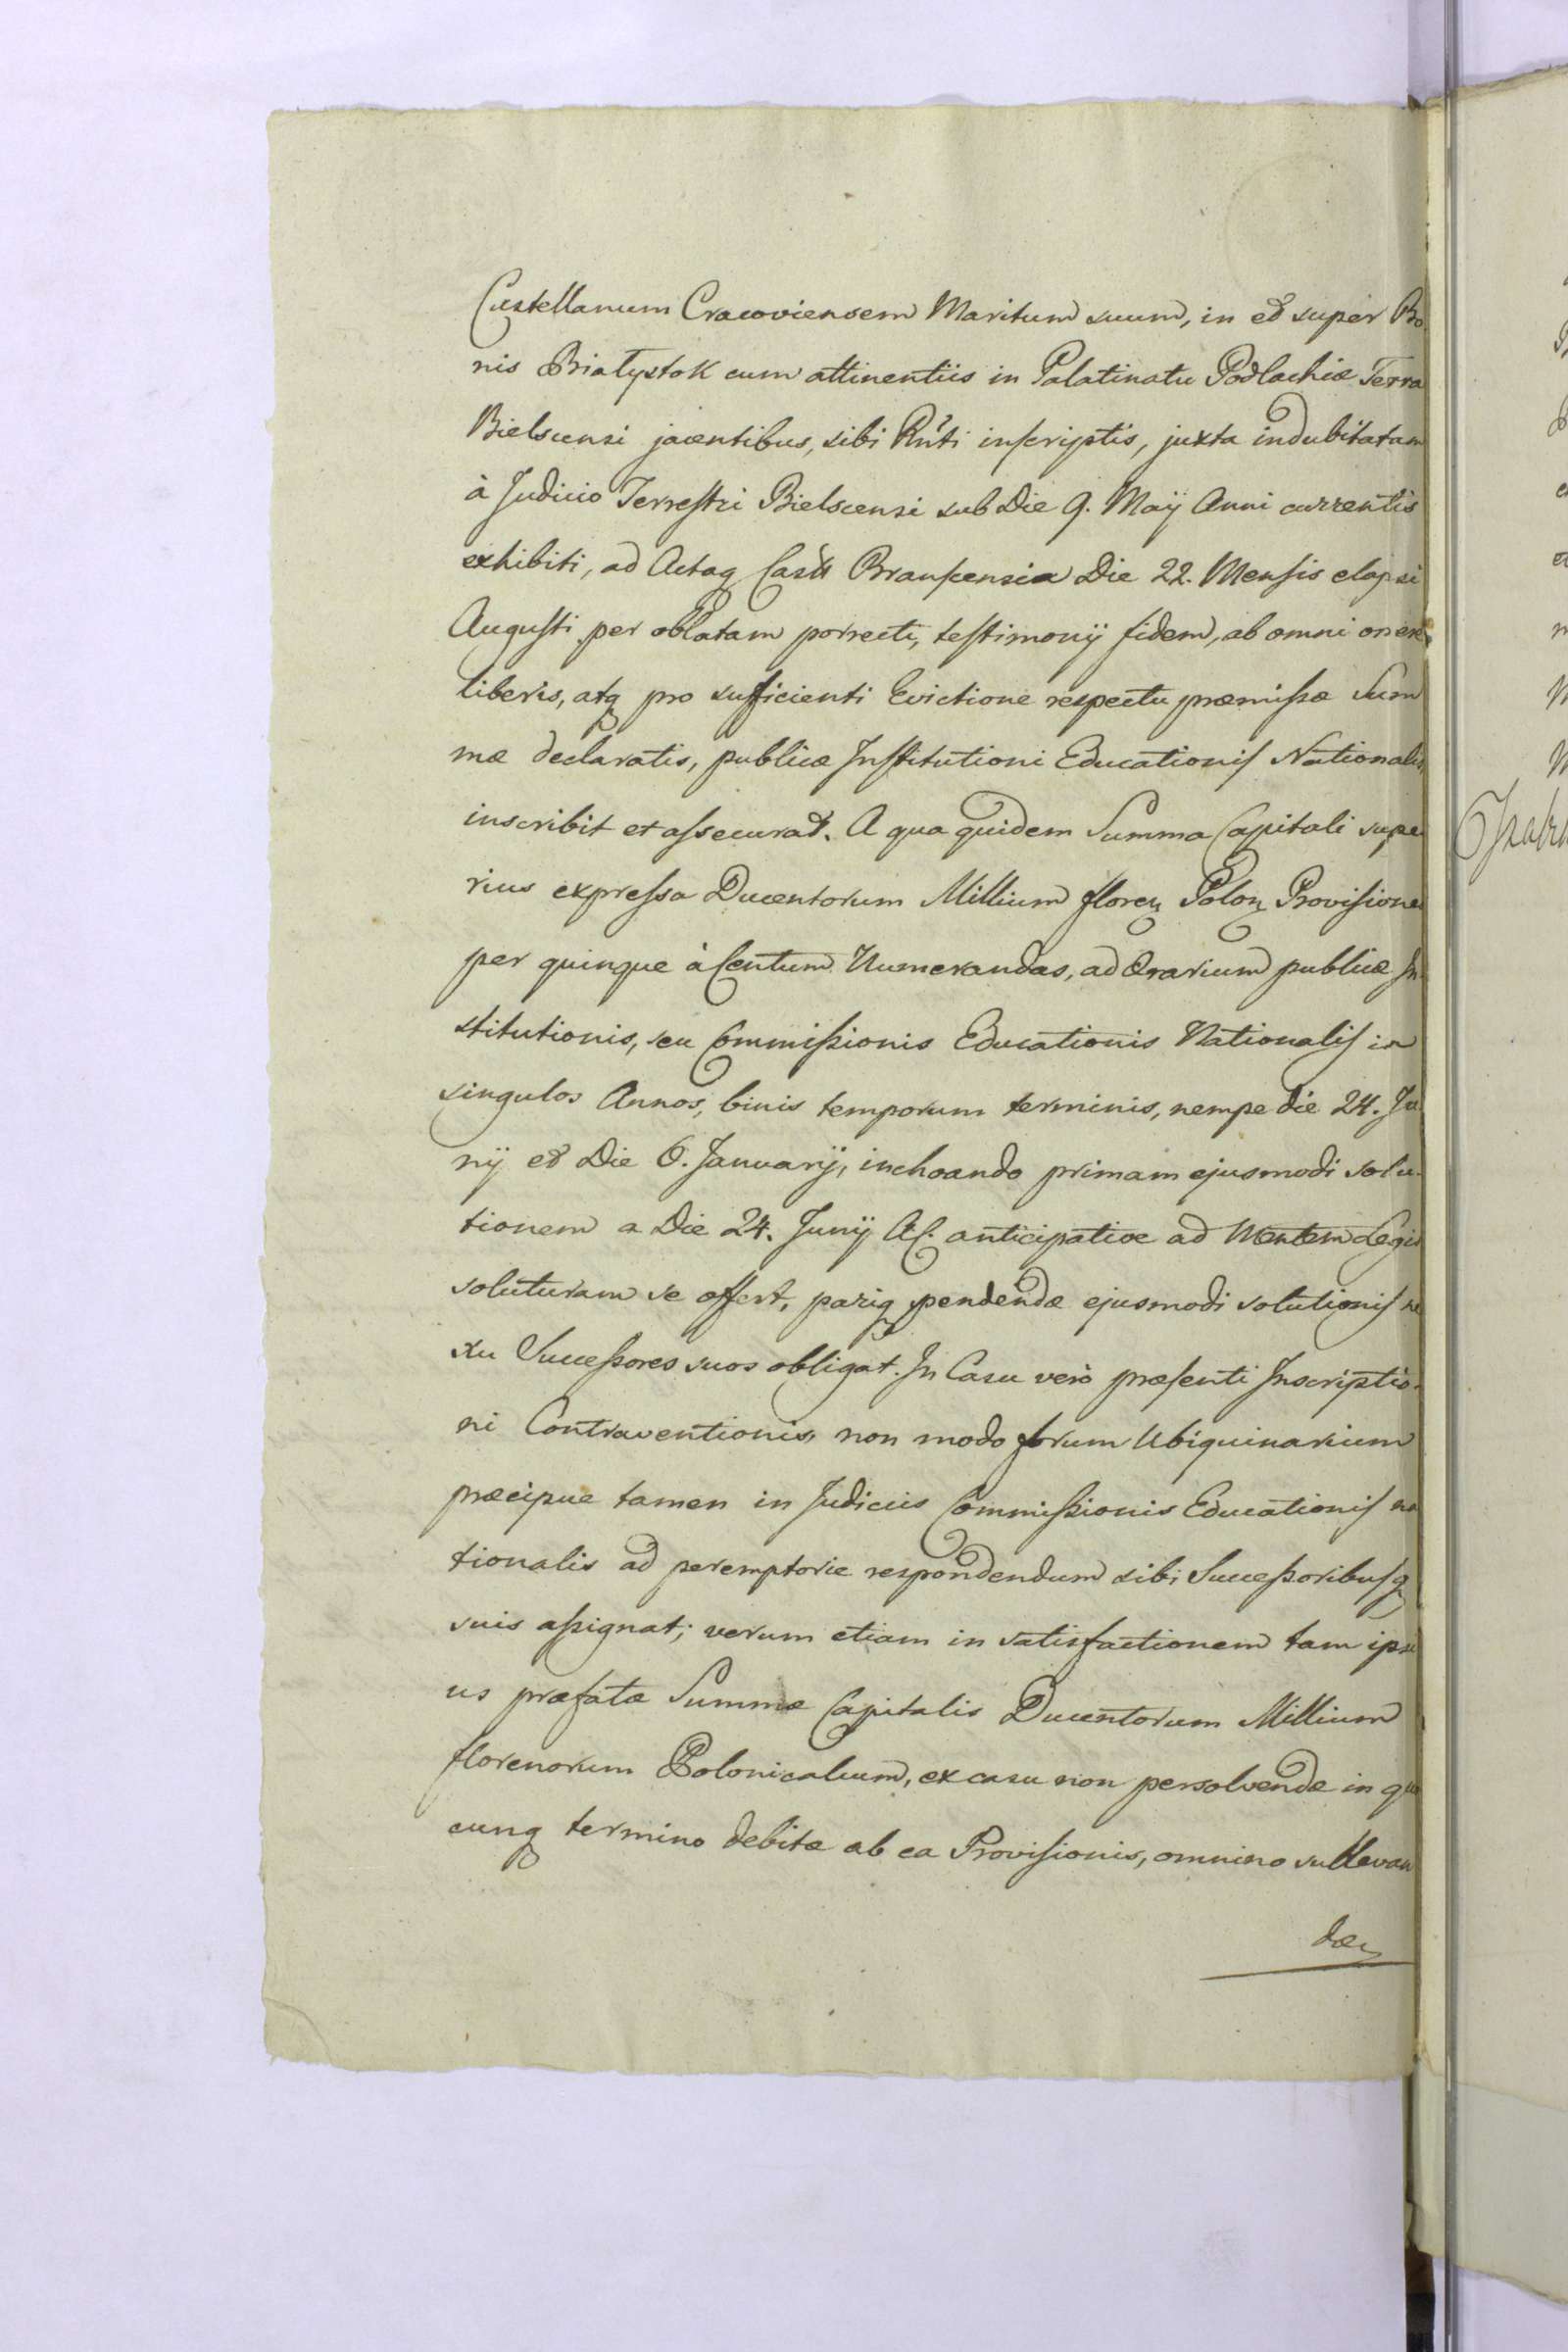 Castellanum Cracoviensem Maritum suum, in et super Bo
nis Białystok cum attinentiis in Palatinatu Podlachiæ Terra
Bielscensi jacentibus, sibi Rnti inscriptis, juxta indubitatam
à Judicio Terrestri Bielscensi sub Die 9. Maij Anni currentis
exhibiti, ad Actaq Castr Branscensia Die 22. Mensis elapsi
Augusti per oblatam porrecti, testimonij fidem, ab omni onere
liberis, atq pro sufficienti Evictione respectu præmissæ Sum
mæ declaratis, publicæ Institutioni Educationis Nationalis
inscribit et assecurat. A qua quidem Summa Capitali supe
rius expressa Ducentorum Millium floren Polon Provisiones
per quinque à Centum Numerandas, ad Ærarium publicæ In
stitutionis, seu Commissionis Educationis Nationalis in
singulos Annos, binis temporum terminis, nempe die 24. Ju
nij et Die 6. Januarij, inchoando primam ejusmodi solu-
tionem a Die 24. Junij A.C. anticipative ad Mentem Legis
soluturam se offert, pariq pendendæ ejusmodi solutionis ne
xu Successores suos obligat. In Casu verò præsenti Inscriptio-
ni Contraventionis, non modo forum Ubiquinarium
præcipue tamen in Judiciis Commissionis Educationis na
tionalis ad peremptorie respondendum sibi Successoribusq
suis assignat; verum etiam in satisfactionem tam ipsi
us præfatæ Summæ Capitalis Ducentorum Millium
florenorum Polonicalium, ex casu non persolvendæ in quo
cunq termino debitæ ab ea Provisionis, omnino sullevan
dæ